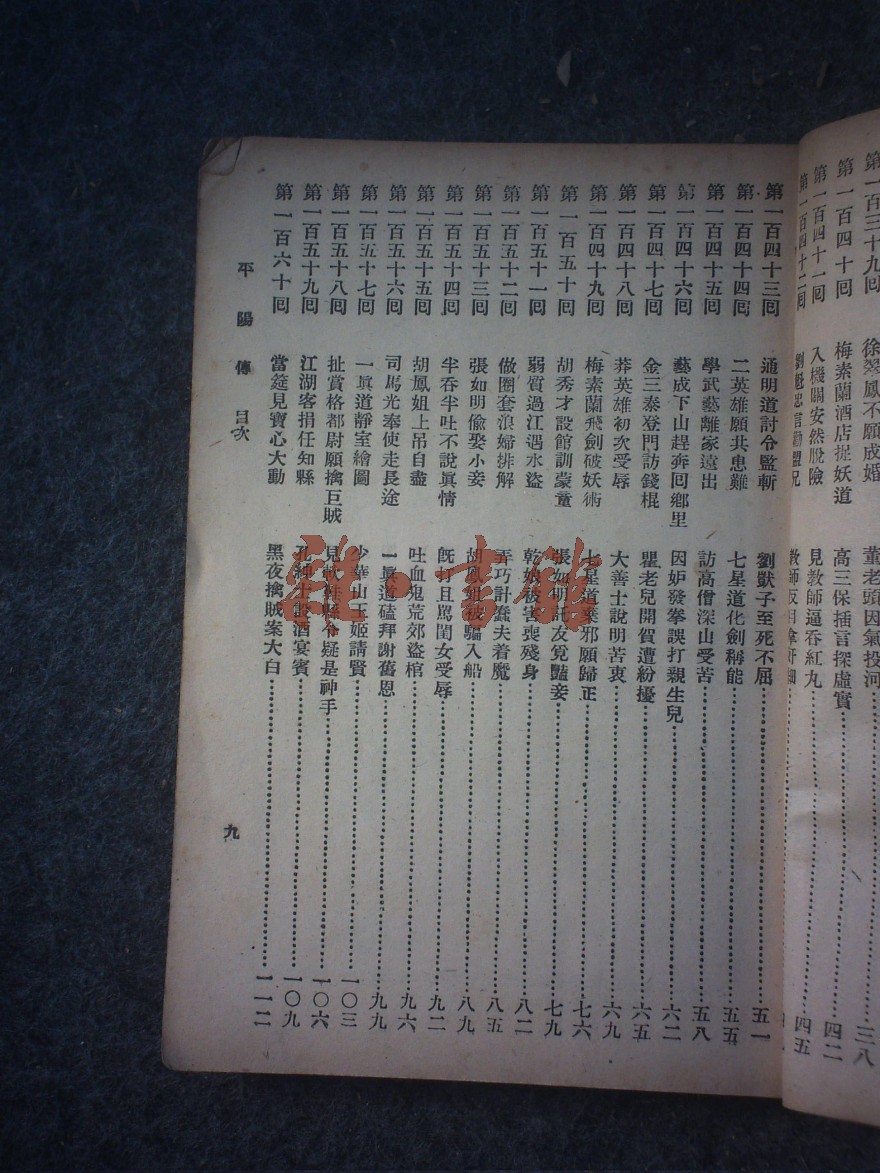 第一百三十九回 徐翠鳳不願成婚 董老頭因氣投河 三八
第一百四十回 梅素蘭酒店捉妖道 高三保插言探虛實 四二
第一百四十一回 入機關安然脫險 見教師逼吞紅丸 四五
第一百四十二回 劉魁忠言勸盟兄
第一百四十三回 通明道討令監斬 劉獃子至死不屈 五一
第一百四十四回 二英雄願共患難 七星道化劍稱能 五五
第一百四十五回 學武藝離家遠出 訪高僧深山受苦 五八
第一百四十六回 藝成下山趕奔回鄉里 因妒發拳誤打親生兒 六二
第一百四十七回 金三泰登門訪錢棍 瞿老兒開賀遭紛擾 六五
第一百四十八回 莽英雄初次受辱 大善士說明苦衷 六九
第一百四十九回 梅素蘭飛劍破妖術 七星道棄邪願歸正 七六
第一百五十回 胡秀才設館訓蒙童 張如明託友覓豔妾 七九
第一百五十一回 弱質過江遇水盜 乾娘被害喪殘身 八二
第一百五十二回 做圈套浪婦排解 弄巧計蠢夫着魔 八五
第一百五十三回 張如明偷娶小妾 胡鳳姐被騙入船 八九
第一百五十四回 半吞半吐不說眞情 旣打且罵閨女受辱 九二
第一百五十五回 胡鳳姐上吊自盡 吐血鬼荒郊盜棺 九六
第一百五十六回 司馬光奉使走長途 一眞道磕拜謝舊恩 九九
第一百五十七回 一眞道靜室繪圖 少華山玉姬請賢 一〇三
第一百五十八回 扯賞格都尉願擒巨賊 見軟鞋縣令疑是神手 一〇六
第一百五十九回 江湖客捐任知縣 孔紳士設酒宴賓 一〇九
第一百六十回 當筵見寶心大動 黑夜擒賊案大白 一一二
平陽傳 目次 九